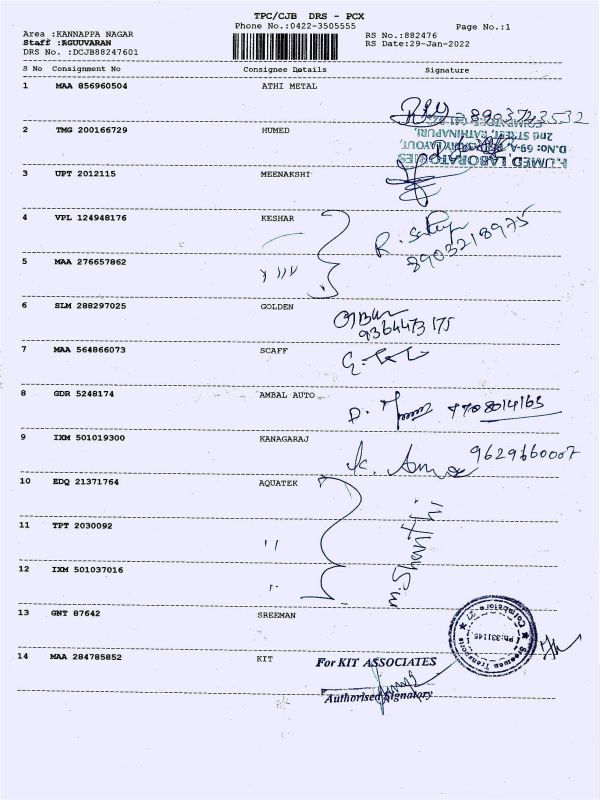 TPC/CJB DRS - PCX
Phone No.:0422-3505555 Page No.:1
Area :KANNAPPA NAGAR RS No.:882476
Staff :RGUUVARAN RS Date:29-Jan-2022
DRS No. :DCJB88247601
S No Consignment No Consignee Details Signature
1 MAA 856960504 ATHI METAL
8903723532
2 TMG 200166729 HUMED
HUMED LABORATORIES
2nd STREET, RATHINAPURI,
3 UPT 2012115 MEENAKSHI
4 VPL 124948176 KESHAR
8903218975
5 MAA 276657862
6 SLM 288297025 GOLDEN
9364473175
7 MAA 564866073 SCAFF
8 GDR 5248174 AMBAL AUTO
9 IXM 501019300 KANAGARAJ
9629660007
10 EDQ 21371764 AQUATEK
11 TPT 2030092
12 IXM 501037016
13 GNT 87642 SREEMAN
Sreeman Transport
Coimbatore
14 MAA 284785852 KIT
For KIT ASSOCIATES
Authorised Signatory